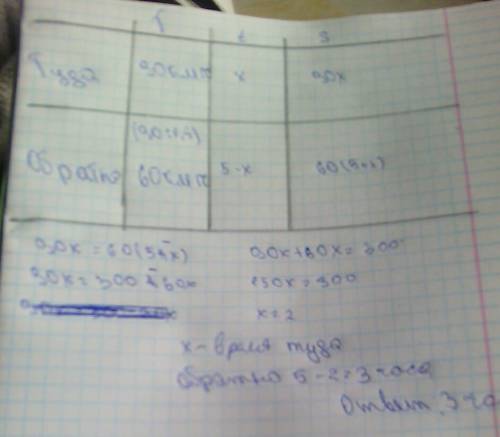 t S
Туда 90км/ч x 90x
Обратно 60км/ч 5-x 60(5-x)
90x=60(5-x)
90x=300-60x
90x+60x=300
150x=300
x=2
x-время туда
обратно 5-2=3 часа
Ответ: 3 ча